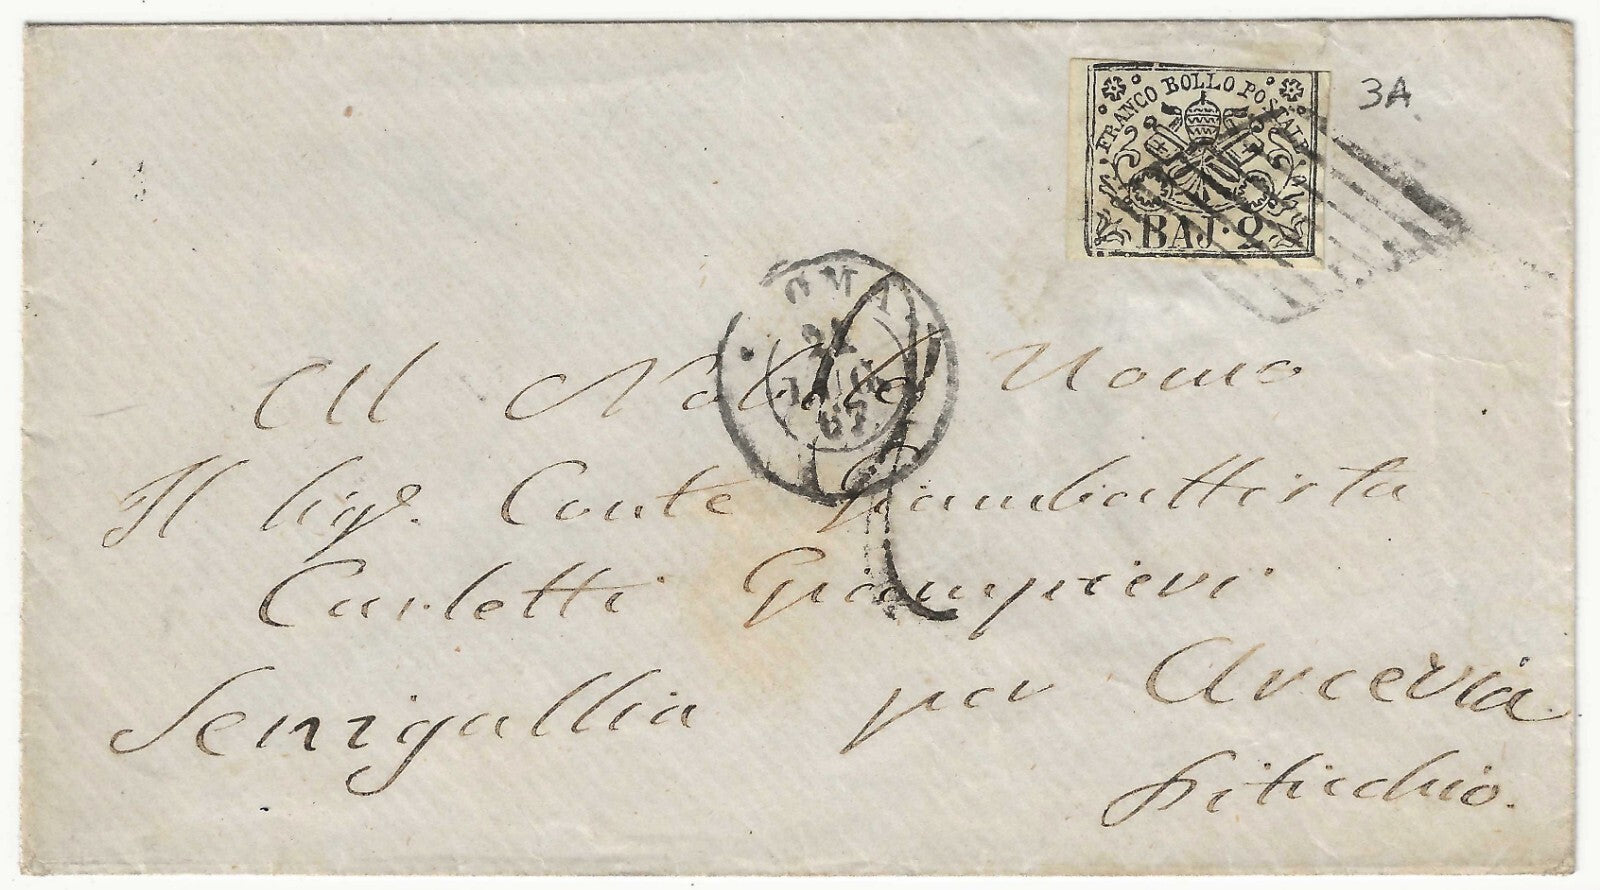 FRANCO BOLLO POSTALE
BAJ·2
3A
ROMA
67
Al Nobile Uomo
Il Sigr. Conte Giambattista
Carletti Giampieri
Senigallia per Arcevia
Piticchio.